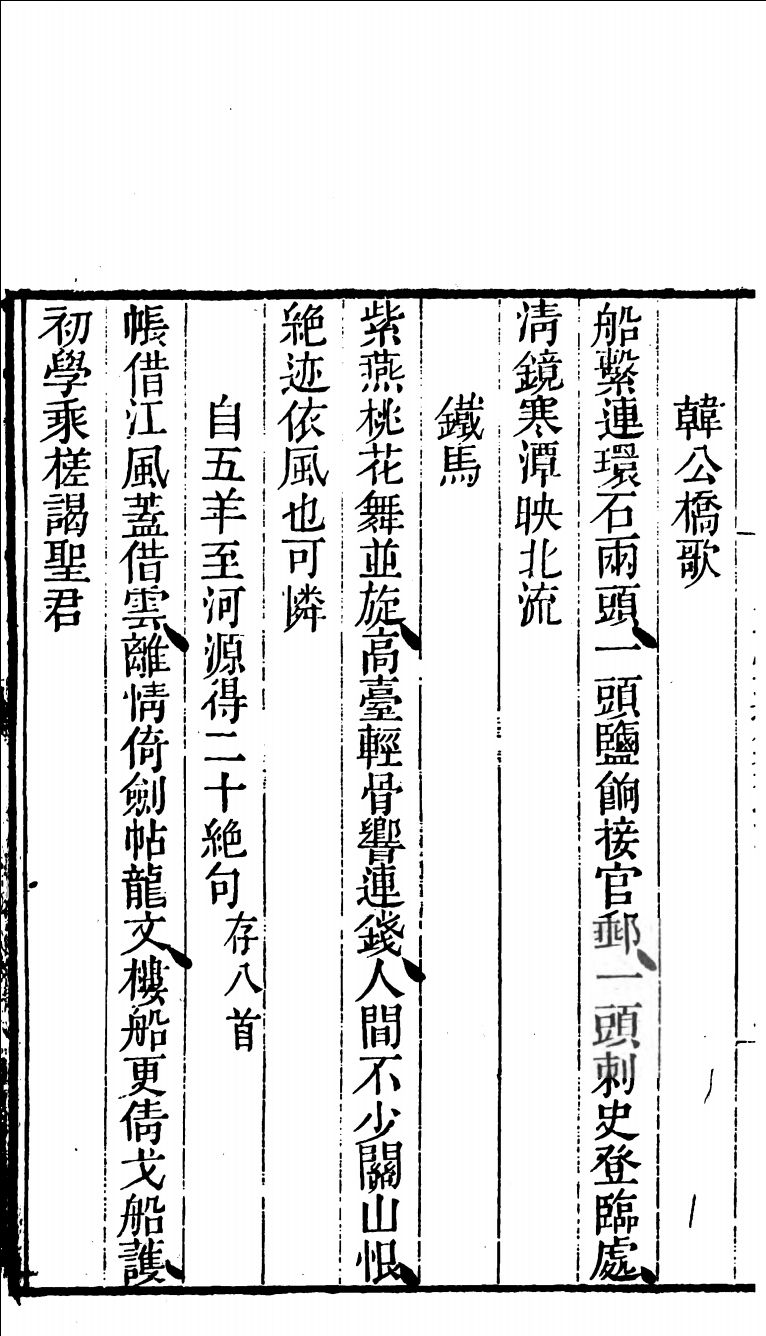 韓公橋歌
船繫連環石兩頭、一頭鹽餉接官郵、一頭刺史登臨處、
清鏡寒潭映北流
鐵馬
紫燕桃花舞並旋、高臺輕骨響連錢、人間不少關山恨、
絕迹依風也可憐
自五羊至河源得二十絕句存八首
帳借江風蓋借雲、離情倚劍帖龍文、樓船更倩戈船護、
初學乘槎謁聖君